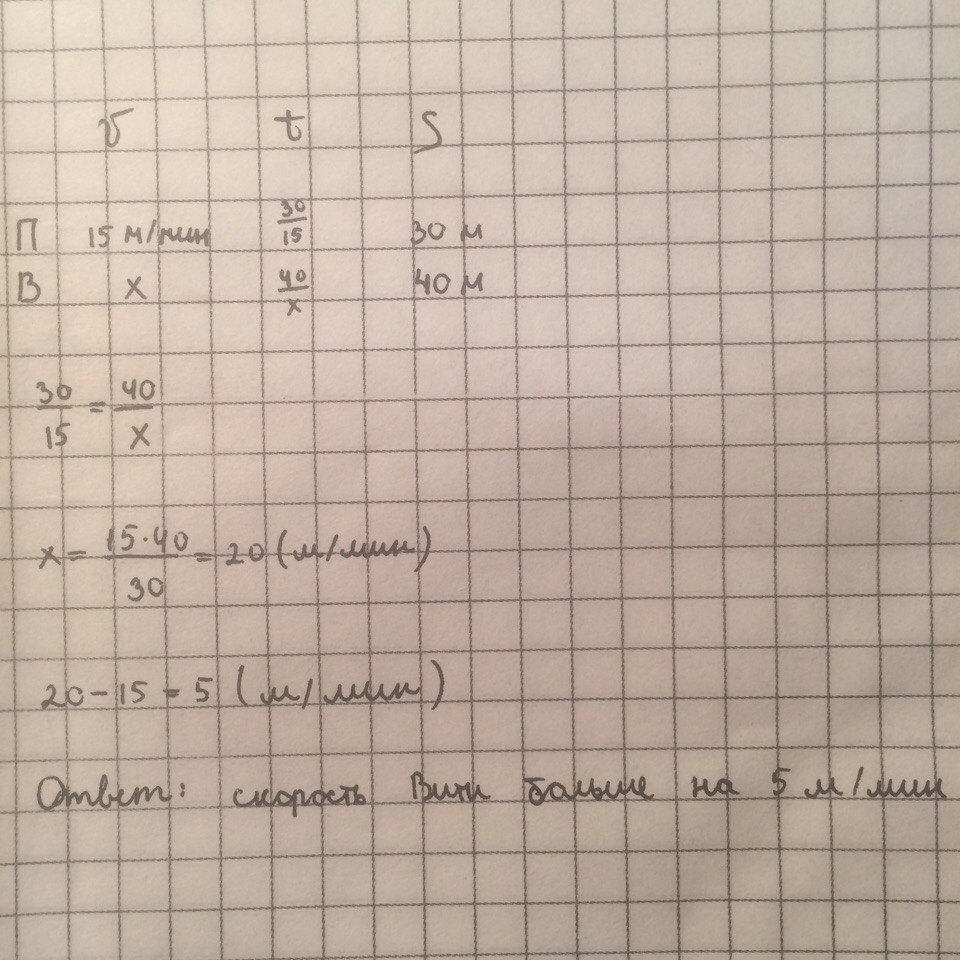 v t S
П 15 м/мин 30/15 30 м
В x 40/x 40 м
30/15 = 40/x
x = 15·40/30 = 20 (м/мин)
20 - 15 = 5 (м/мин)
Ответ: скорость Вити больше на 5 м/мин